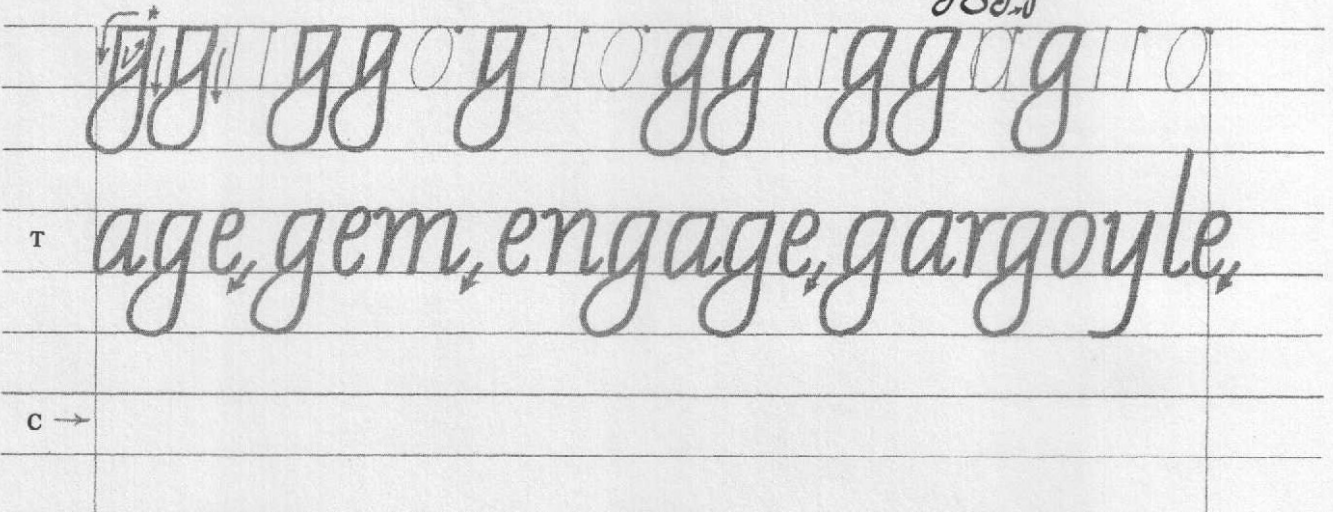 gg gg g gg gg g
T age, gem, engage, gargoyle,
C →